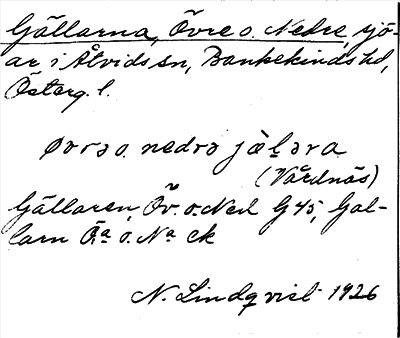 Gällarna, Övre o. Nedre, sjö-
ar i Åtvids sn, Bankekinds hd,
Österg. l.
øvrə o. nedrə jäḷəra
(Vårdnäs)
Gällaren, Öv. o. Ned G 45, Gäl-
larn Ö.a o. N.a ek
N. Lindqvist 1926